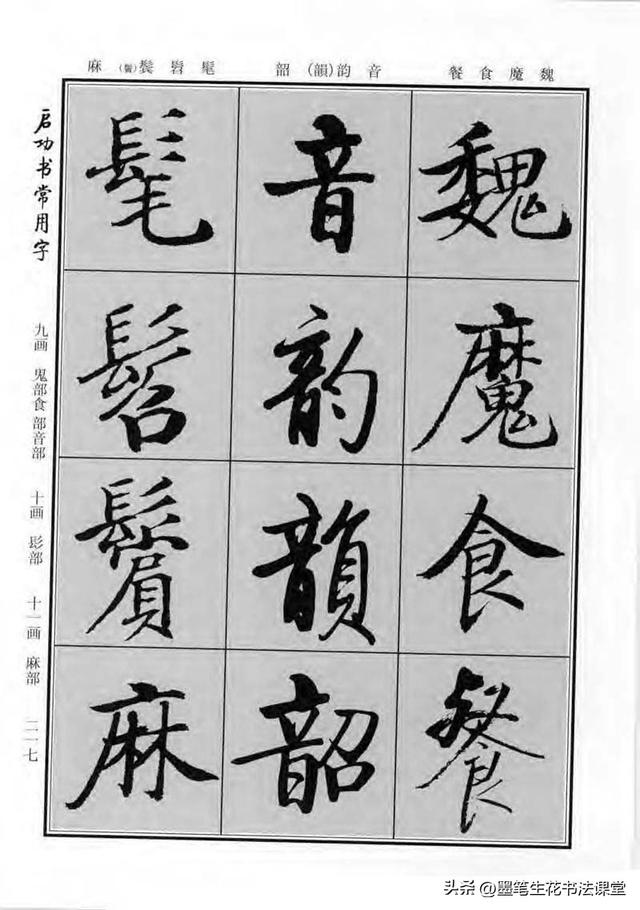 魏魔食餐
音韵(韻)韶
髦髫鬓(鬢)麻
魏魔食餐
音韵韻韶
髦髫鬢麻
启功书常用字
九画 鬼部食部音部 十画 髟部 十一画 麻部 二一七
头条 @墨笔生花书法课堂